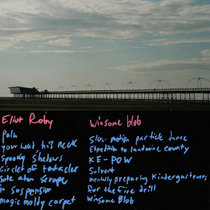 Eliot Roby
Palm
your hand, his neck
Spooky Shadows
Circlet of tentacles
Sole man Scrape
in Suspension
magic moldy carpet
Winsome blob
Slow motion particle dance
Expedition to
KE-POW
Solvent
mentally preparing Kindergarteners
for the fire drill
Winsome Blob